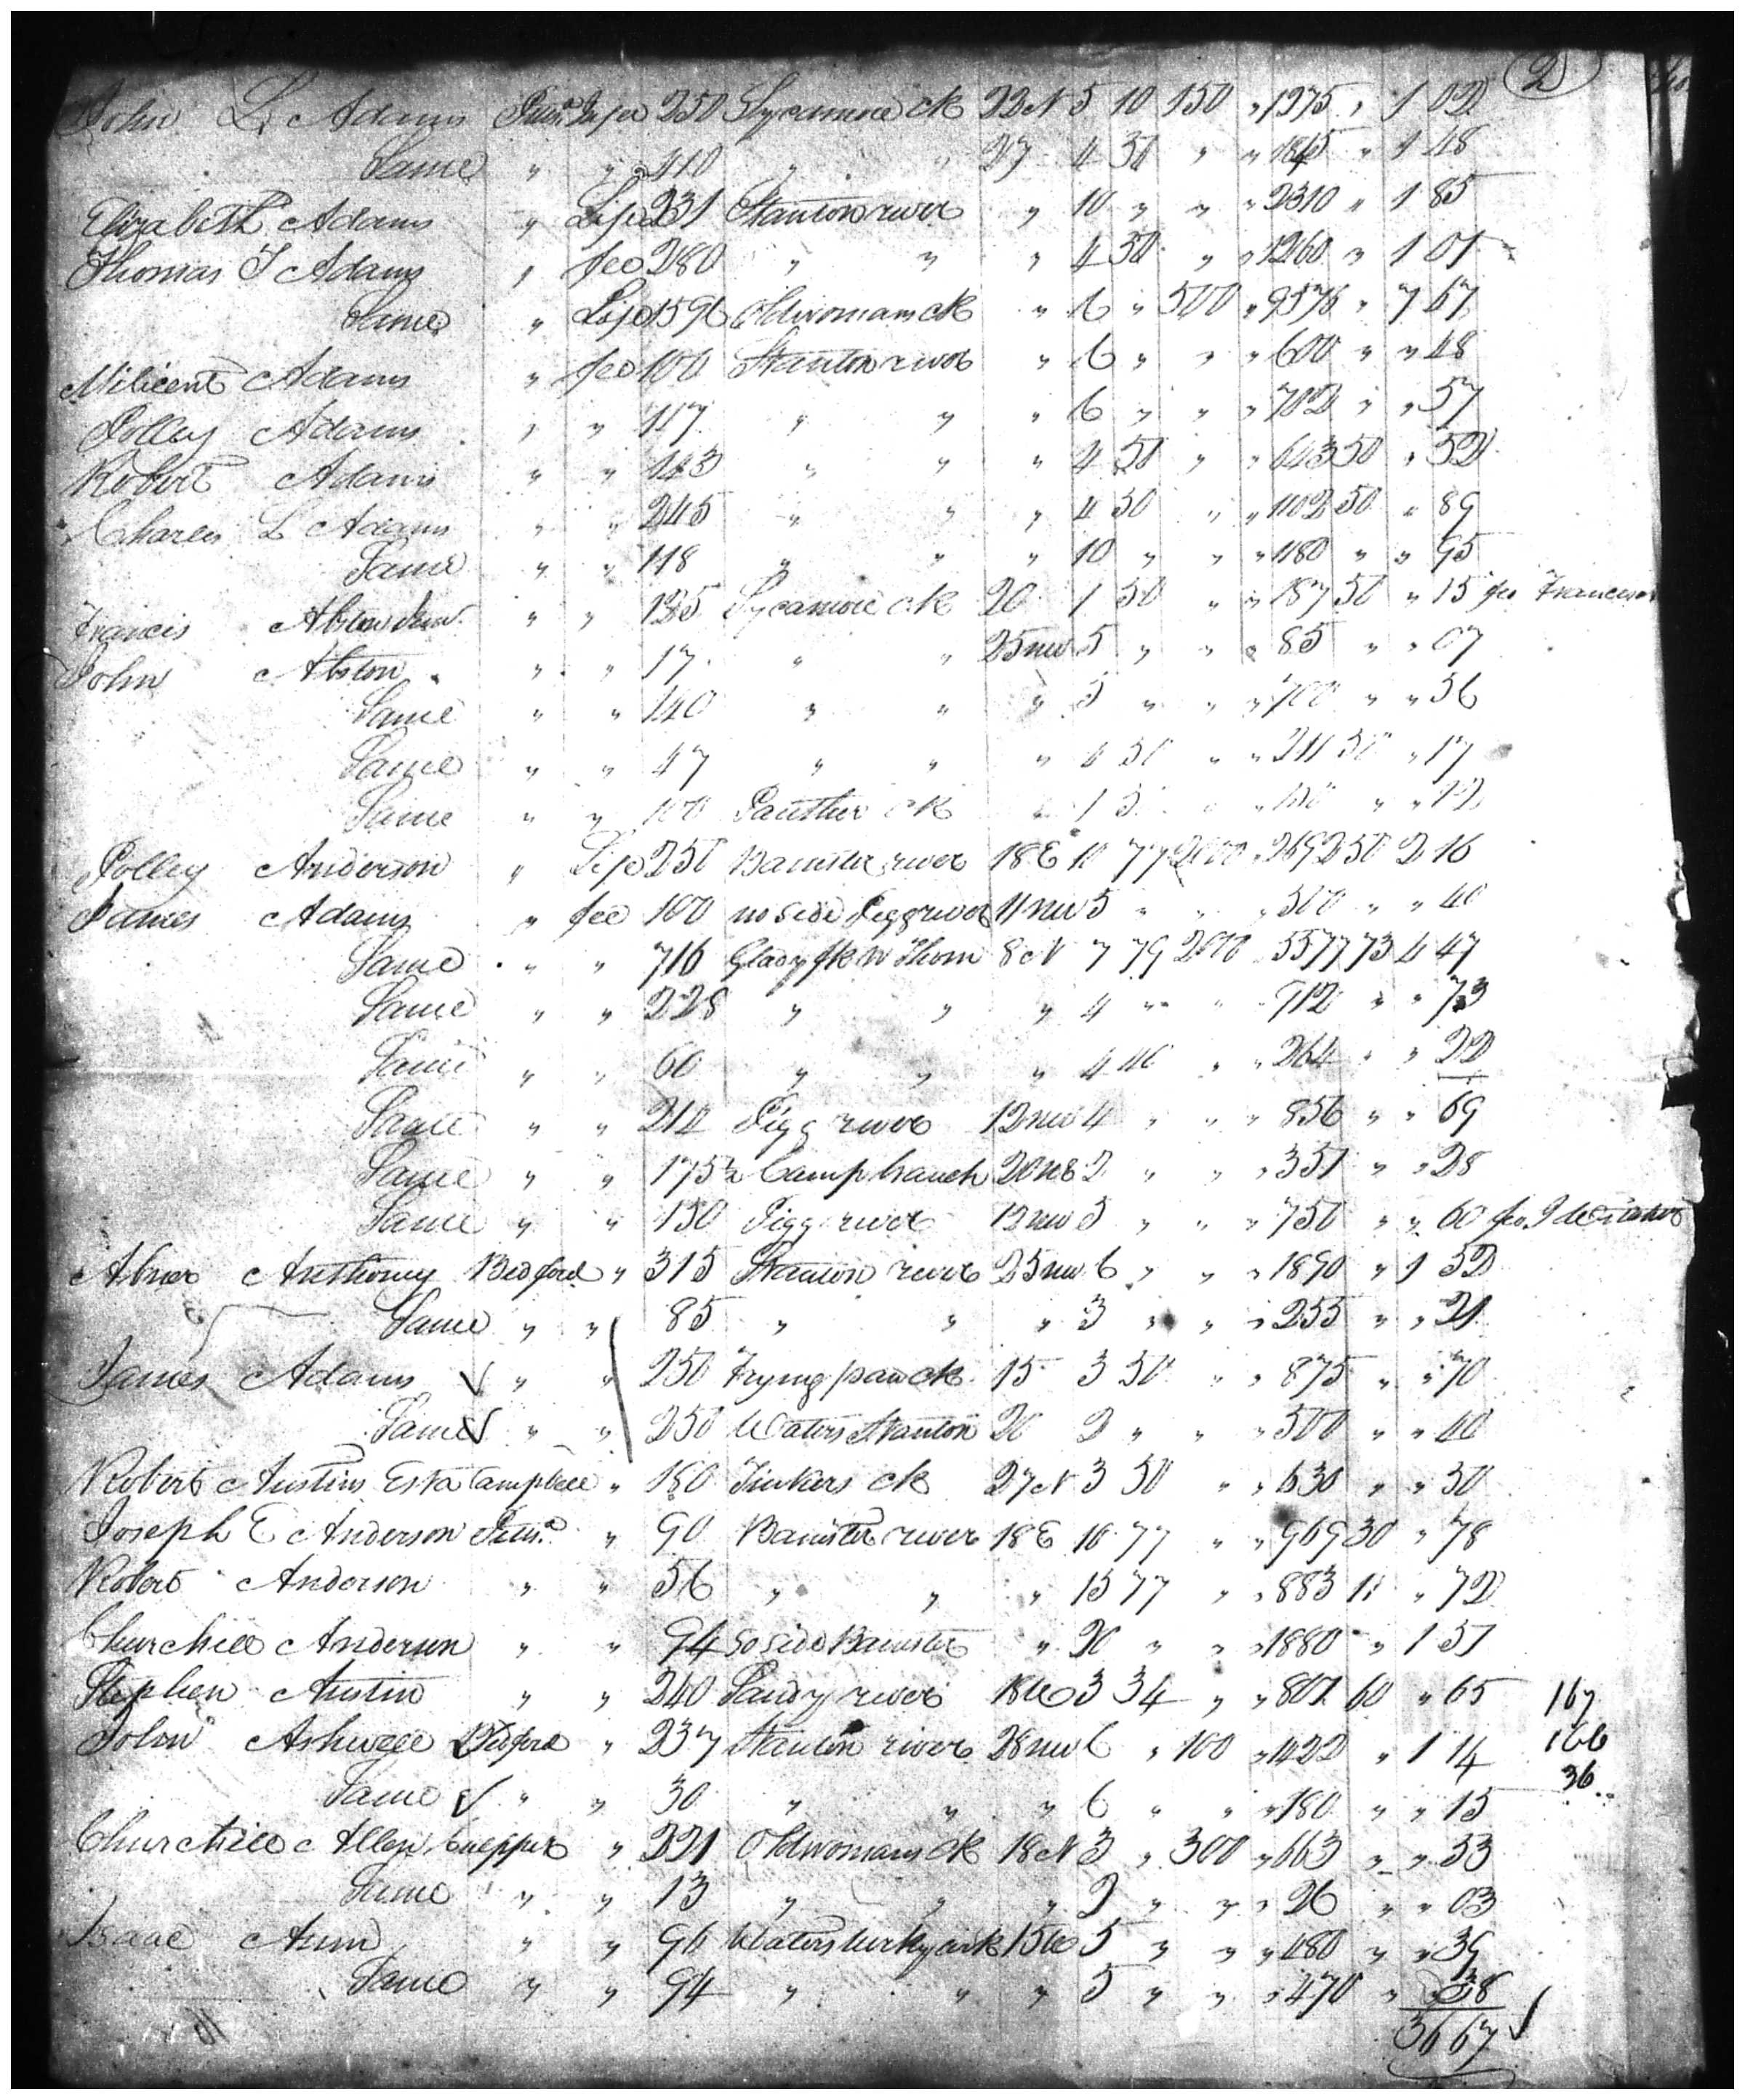 2
John L Adams 250 Sycamore ck 22 N 5 10 150 " 1275 " 1 02
Same " " 410 " " 27 4 50 " " 1845 " 1 48
Elizabeth Adams " Life 231 Stanton river " 10 " " " 2310 " 1 85
Thomas T Adams " fee 280 " " " 4 50 " " 1260 " 1 01
Same " Life 1596 Oldwomans ck " 6 " 500 " 9576 " 7 67
Milicent Adams " fee 100 Stanton river " 6 " " " 600 " " 48
Polley Adams " " 117 " " " 6 " " " 702 " " 57
Robert Adams " " 143 " " " 4 50 " " 643 50 " 52
Charles L Adams " " 245 " " " 4 50 " " 1102 50 " 89
Same " " 118 " " " 10 " " " 1180 " " 95
Francis Abston " " 125 Sycamore ck 20 1 50 " " 187 50 " 15
John Abston " " 17 " " 25 nw 5 " " " 85 " " 07
Same " " 140 " " " 5 " " " 700 " " 56
Same " " 47 " " " 4 50 " " 211 50 " 17
Same " " 100 Panther ck " 1 5 " " 150 " " 12
Polley Anderson " Life 250 Banister river 18 E 10 77 2000 " 2692 50 2 16
James Adams " fee 100 no side Pigg river 11 nw 5 " " " 500 " " 40
Same " " 716 Glady fk W Thorn 8 N 7 79 2000 " 5577 73 4 47
Same " " 228 " " " 4 " " " 912 " " 73
Same " " 60 " " " 4 40 " " 264 " " 22
Same " " 214 Pigg river 12 nw 4 " " " 856 " " 69
Same " " 175½ Camp branch 20 2 " " " 351 " " 28
Same " " 150 Pigg river 12 nw 5 " " " 750 " " 60
Abner Anthony Bedford " 315 Stanton river 25 nw 6 " " " 1890 " 1 52
Same " " 85 " " " 3 " " " 255 " " 21
James Adams " " 250 Fryingpan ck 15 3 50 " " 875 " " 70
Same " " 250 Waters Stanton 20 2 " " " 500 " " 40
Robert Austins Esta Campbell " 180 Tinkers ck 27 N 3 50 " " 630 " " 50
Joseph E Anderson " 90 Banister river 18 E 10 77 " " 969 30 " 78
Robert Anderson " " 56 " " " 15 77 " " 883 11 " 72
Churchill Anderson " " 94 So side Banister " 20 " " " 1880 " 1 51
Stephen Austin " " 240 Sandy river 18 W 3 34 " " 801 60 " 65 167
John Ashwell Bedford " 237 Stanton river 28 nw 6 " 100 " 1422 " 1 14 166
Same " " 30 " " " 6 " " " 180 " " 15 36
Churchill Allen Culpeper " 221 Oldwomans ck 18 N 3 " 300 " 663 " " 53
Same " " 13 " " " 2 " " " 26 " " 03
Isaac " " 96 Waters turkeycock 15 W 5 " " " 480 " " 39
Same " " 94 " " " 5 " " " 470 " 38
36 67